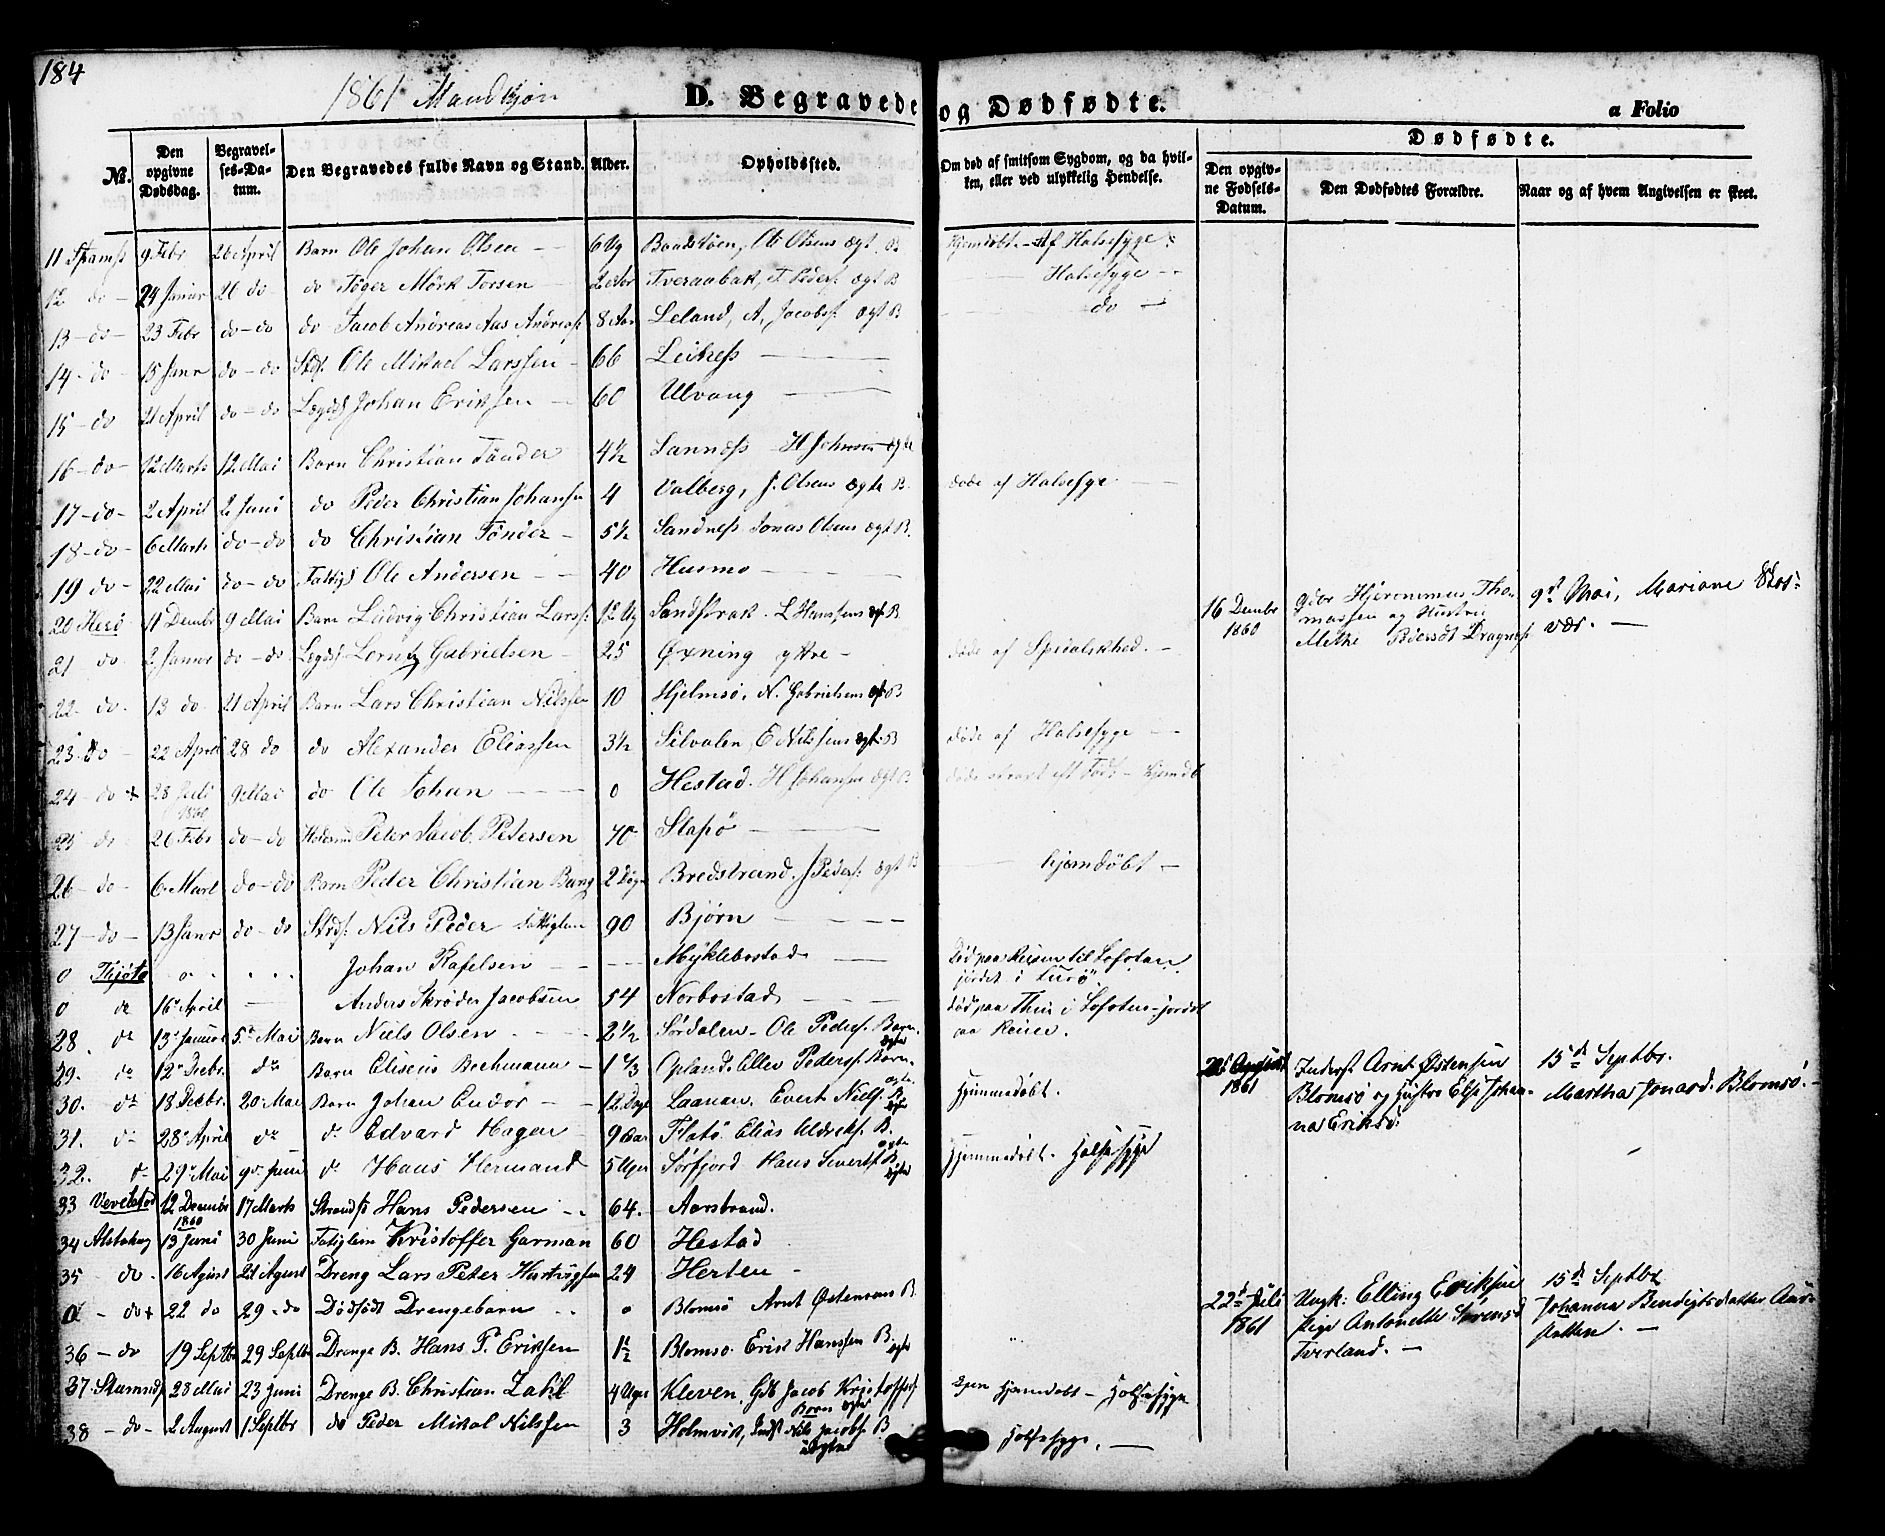 184
1861 Mandkjøn
D. Begravede og Dødfødte.
a Folio
Dødfødte.
No. Den opgivne Dødsdag. Begravelses-Datum. Den Begravedes fulde Navn og Stand. Alder. Opholdssted. Om død af smitsom Sygdom, og da hvilken, eller ved ulykkelig Hendelse. Den opgivne Fødsels-Datum. Den Dødfødtes Forældre. Naar og af hvem Angivelsen er skeet.
11 9 Febr 26 April Barn Ole Johan Olsen 6 Ug Ole Olsens ægt B Hjemdøbt - Af Halsesyge
12 do 24 Januar 26 do do Tøger Mörk Torsen 2 Aar Tveraabak, T. Peders. ægt B Halsesyge
13 do 23 Febr do do do Jacob Andreas Aas Andreas. 8 Aar Leland, A. Jacobs. ægt B do
14 do 15 Janr do do Ole Mikael Larssen 66 Leirness
15 do 21 April do do Johan Eriksen 60 Ulvang
16 do 12 Marts 12 Mai Barn Christian Tönder 4½ Sanness H Johnsens ægte
17 do 2 April 2 Juni do Peder Christian Johans. 4 Valberg, J. Olsens ægte B døde af Halsesyge
18 do 6 Marts do do do Christian Tönder 5½ Sandness Jonas Olsens ægt B.
19 do 22 Mai do do Fattigl Ole Andersen 40 Husmo
20 Herö 11 Dembr 9 Mai Barn Ludvig Christian Larss. 12 Ug Sandstrak. L Hanssens ægt B
16 Dembr 1860 Hjeronimus Thomassen og Hustru Methe Pedersdt Dragnes
9de Mai, Mariane Skosvær.
21 do 2 Januar do do Lorntz Gabrielsen 25 Øxning yttre døde af Spedalskhed.
22 do 13 do 21 April Barn Lars Christian Nilssen 10 Hjelmsö, N. Gabrielsens ægt B
23 Do 22 April 28 do do Alexander Eliassen 3½ Silvalen, E Nilssens ægt B døde af Halsesyge
24 do + 28 Juli 1860 9 Mai do Ole Johan 0 Hestad. H Johansen ægt B døde strax eft Føds - hjemdbt
25 do 26 Febr do do Peter Jacob Petersen 70 Slapö
26 do 6 Mart do do Barn Peder Christian Bang 2 Døgn Bredstrand. J Peders. ægt B hjemdöbt
27 do 13 Janr do do Nils Peder Fattiglem 90 Bjørn
0 Thjøta Johan Rafelsen Myklebostad Död paa Reisen til Lofoten jordet i "Turö"
0 do 16 April Anders Skröder Jacobsen 54 Norbostad död paa Thur i Lofoten - jordet paa Reiner.
28 do 13 Januar 5te Mai Barn Niels Olsen 2½ Sördalen - Ole Peders. Barn ægte
29. do 12 Decbr. do Barn Eliseus Bechmann 1 Opland. Ellev Peders. Barn ægte
30. do 18 Decbr. 20 Mai Barn Johan Endor 12 Dage Laanan. Evert Niels. B ægte Hjemmedöbt.
26 August 1861 Inderst Arnt Østensen Blomsö og Hustro Else Johanna Eriksd.
15de Septbr. Martha Jonasd. Blomsö.
31. do 28 April do do Edvard Hagen 9 Aar Flatö. Elias Aldreks. B. ægte
32. do 29 Mai 9de Juni do Hans Hermand 5 Uger Sörfjord Hans Siverts. B ægte Hjemmedöbt. Halsesyge
33 Vevelstad 12 Decembr 1860 17 Marts Hans Pedersen 64. Aarstrand.
34 Alstahoug 13 Juni 30 Juni Fatiglem Kristoffer Garman 60 Hestad
35 do 16 Agust 21 Agust Dreng Lars Peter Hartvigsen 24 Herten
0 do + 22 do 29 do Dödfödt Drengebarn 0 Blomsö Arnt Østensens B
22de Juli 1861 Ungk: Elling Eriksen Pige Antonette Sörensd Tverland.
15de Septbr Johanna Bendigtsdatter
36 do 19 Septbr 29 Septbr Drenge B. Hans P. Eriksen 1½ Blomsö. Erik Hanssen B. ægte
37 Stamnes 28 Mai 23 Juni Drenge B. Christian Zahl 4 Uger Kleven. Gdb Jacob Kristoffers. Barn ægte hjemdöbt - Halsesyge
38 do 2 August 1 Septbr do Peder Mikal Nilssen 3 Holmvik, Inds Nils Jacobs. B uægte Halsesyge.